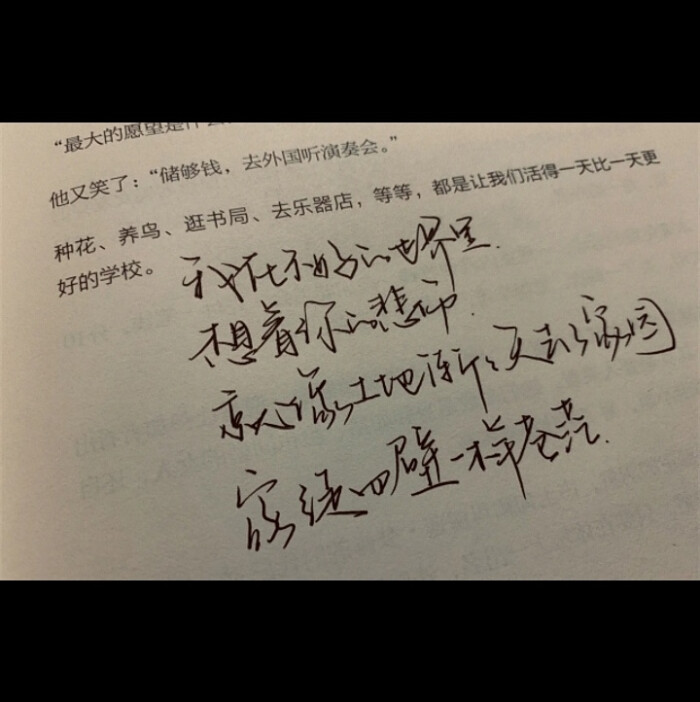 “最大的愿望是什
他又笑了：“储够钱，去外国听演奏会。”
种花、养鸟、逛书局、去乐器店，等等，都是让我们活得一天比一天更
好的学校。
我在不好的世界里.
想着你的悲
就像土地渐渐失去了家园
家徒四壁一样苍茫.